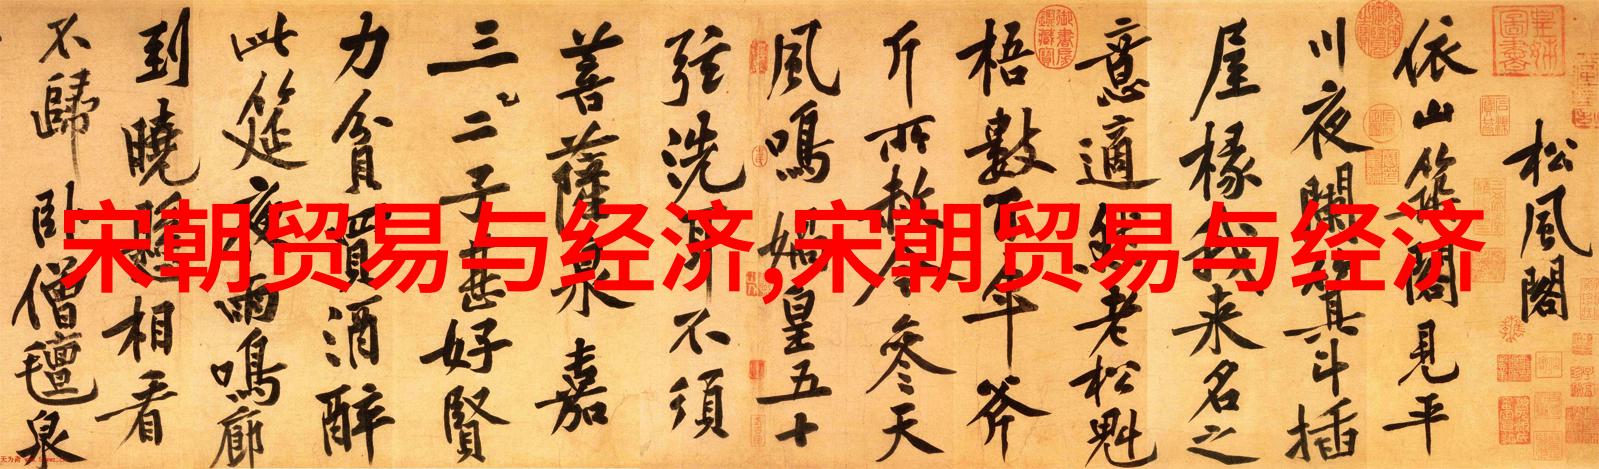 松風閣
依山築閣見平
川夜闌箕斗插
屋椽我来名之
意適然老松魁
梧數百年斧
斤所赦今參天
風鳴媧皇五十
弦洗耳不須
菩薩泉嘉
三二子甚好賢
力貧買酒醉
此筵夜雨鳴廊
到曉懸相看
不歸卧僧氊泉
宋朝贸易与经济,宋朝贸易与经济